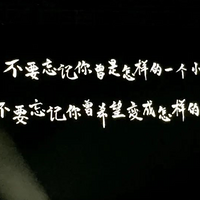 不要忘记你曾是怎样的一个小
不要忘记你曾希望变成怎样的